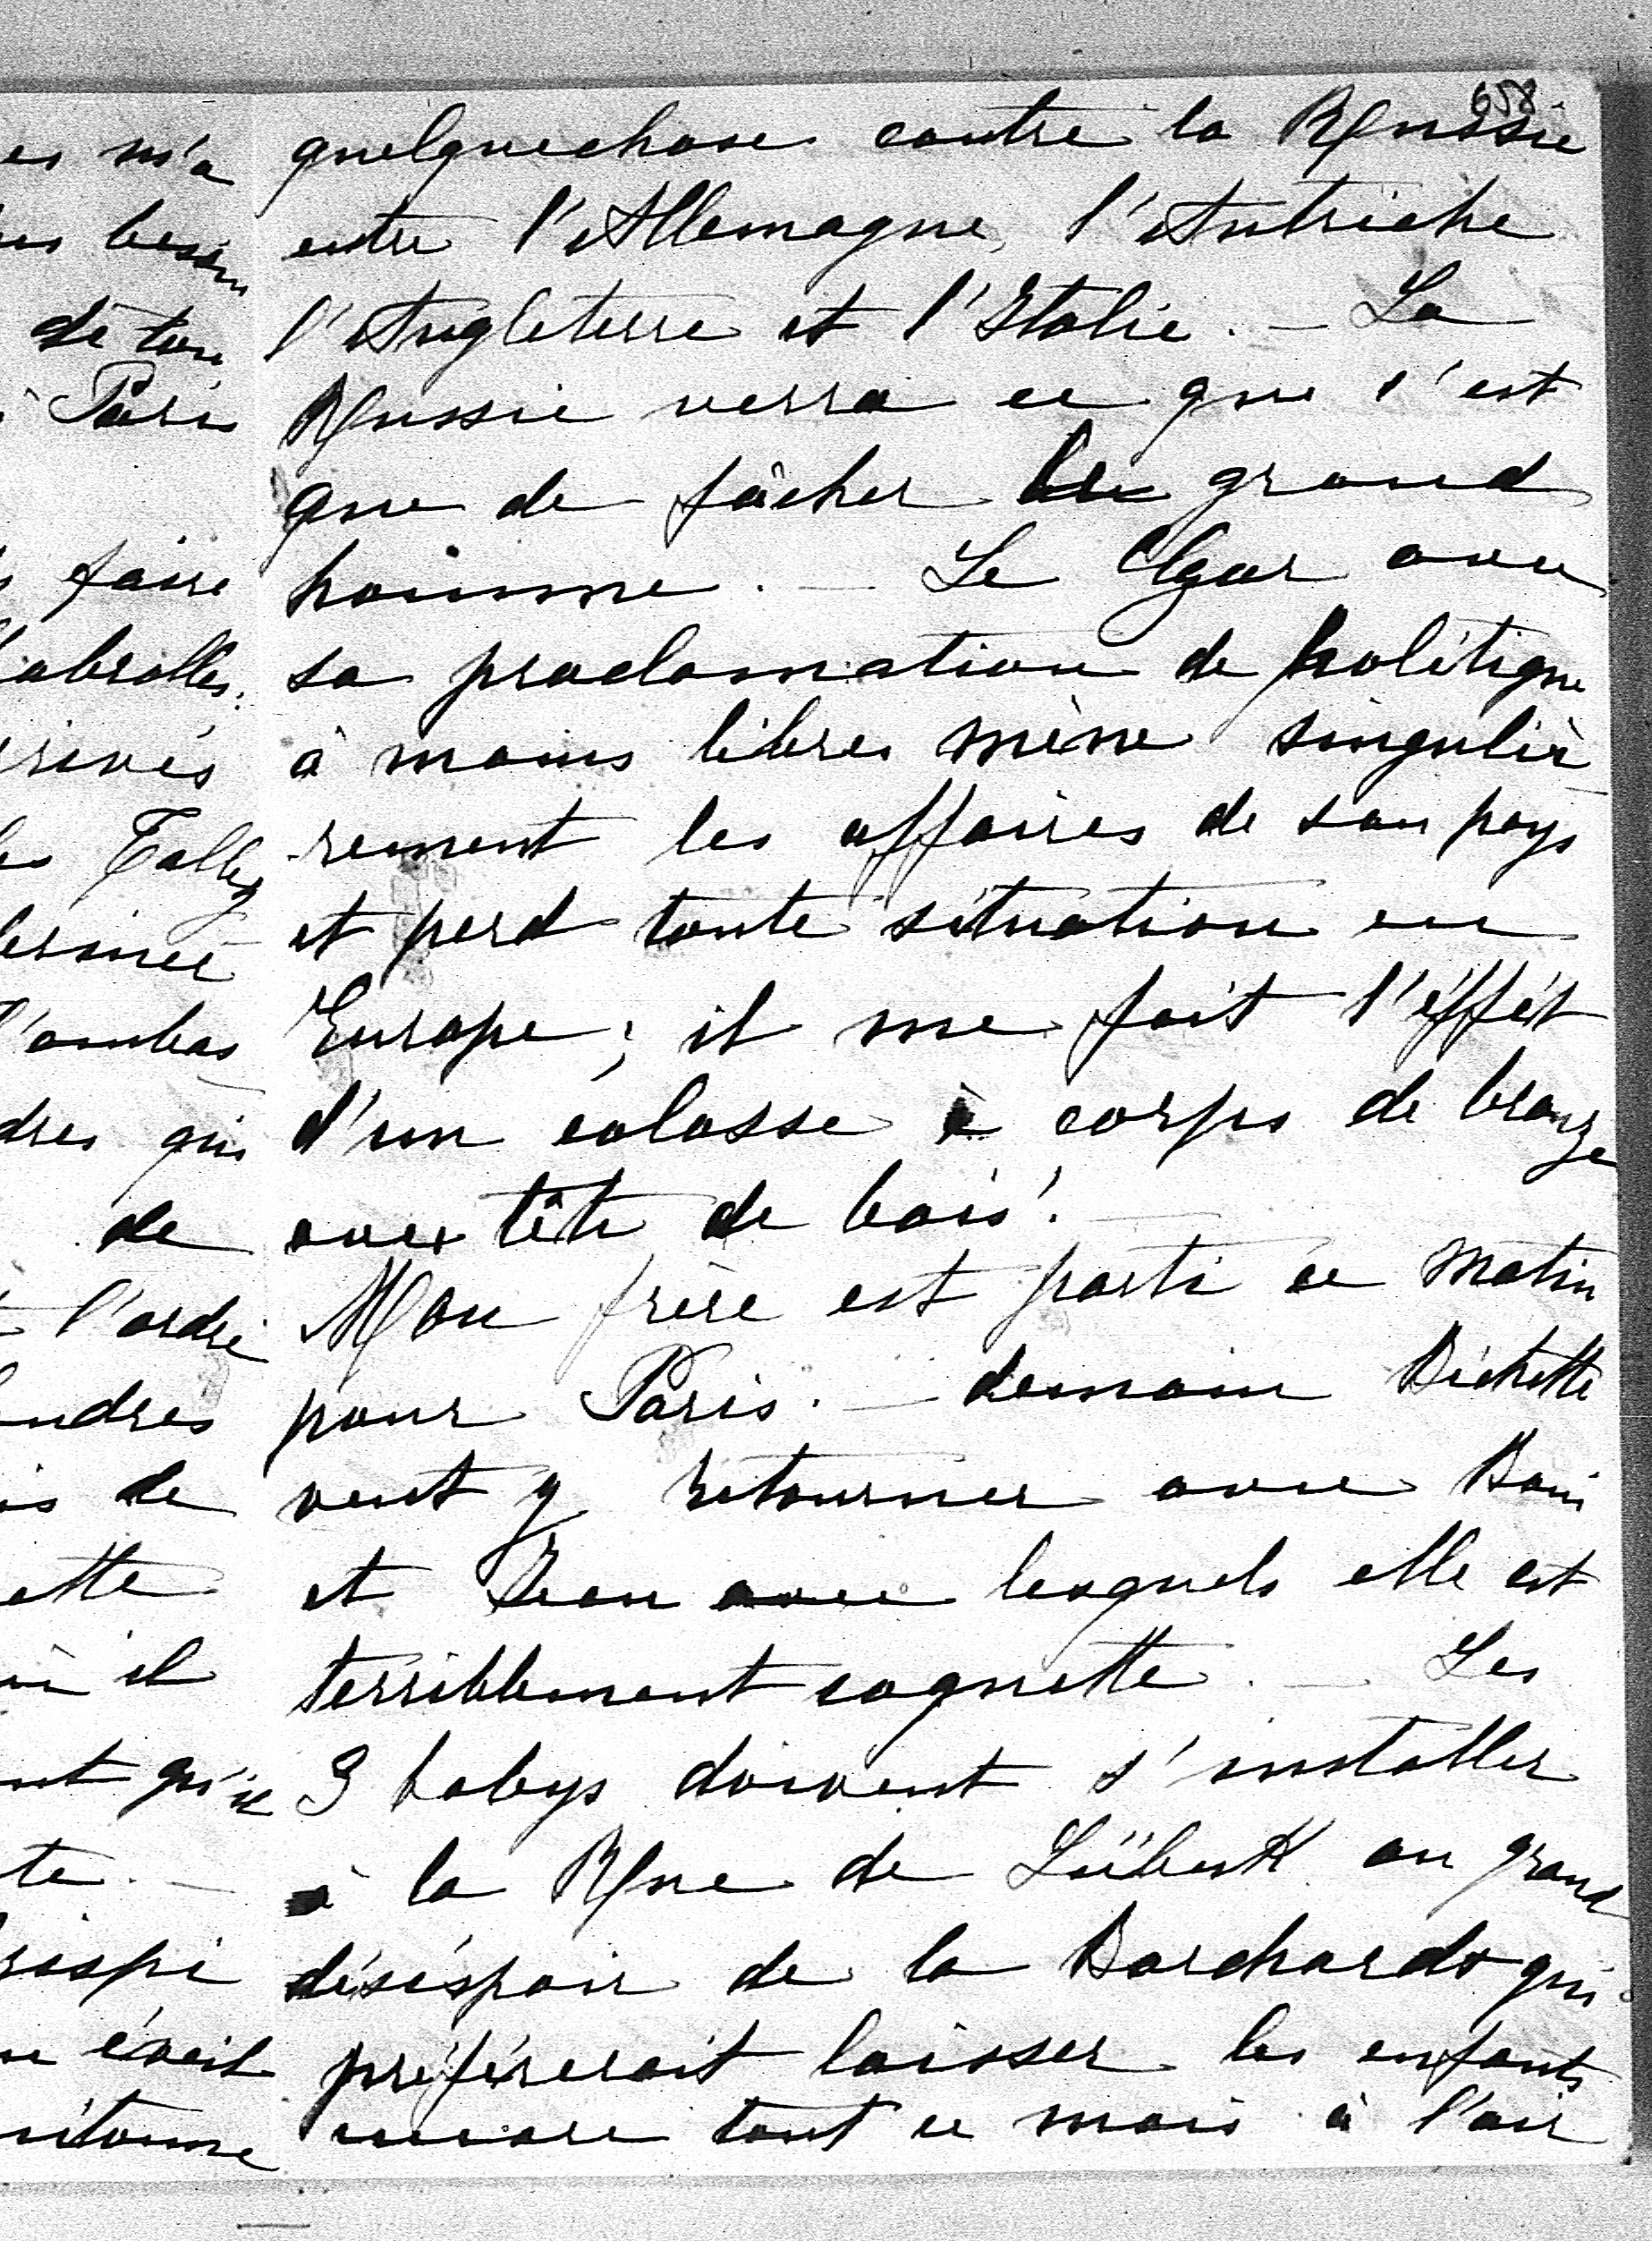 658
quelquechose contre la Russie
entre l'Allemagne, l'Autriche
l'Angleterre et l'Italie. — La
Russie verra ce que c'est
que de fâcher le grand
homme. — Le Czar avec
sa proclamation de politique
à mains libres mène singuliè
-rement les affaires de son pays
et perd toute situation en
Europe; il me fait l'éffét
d'un colosse à corps de bronze
avec tête de bois! —
Mon frère est parti ce matin
pour Paris. — demain Bichette
veut y retourner avec Boni
et Jean avec lesquels elle est
terriblement coquette. — Les
3 babys doivent s'installer
à la Rue de Lübeck au grand
désespoir de la qui
préférerait laisser les enfants
encore tout ce mois à l'air
es m'a
besoin
de ton
à Paris
faire
rivés
les
l'ambas
dres qui
de
l'ordre
ondres
is de
ette
où il
nt qu'il
te. —
rispi